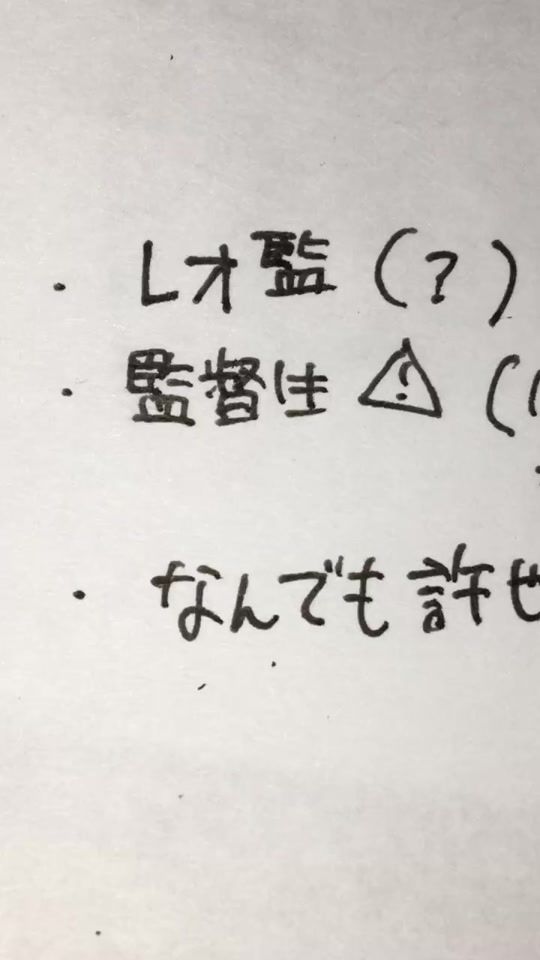 ・レオ監(?)
・監督生⚠(
・なんでも許せ